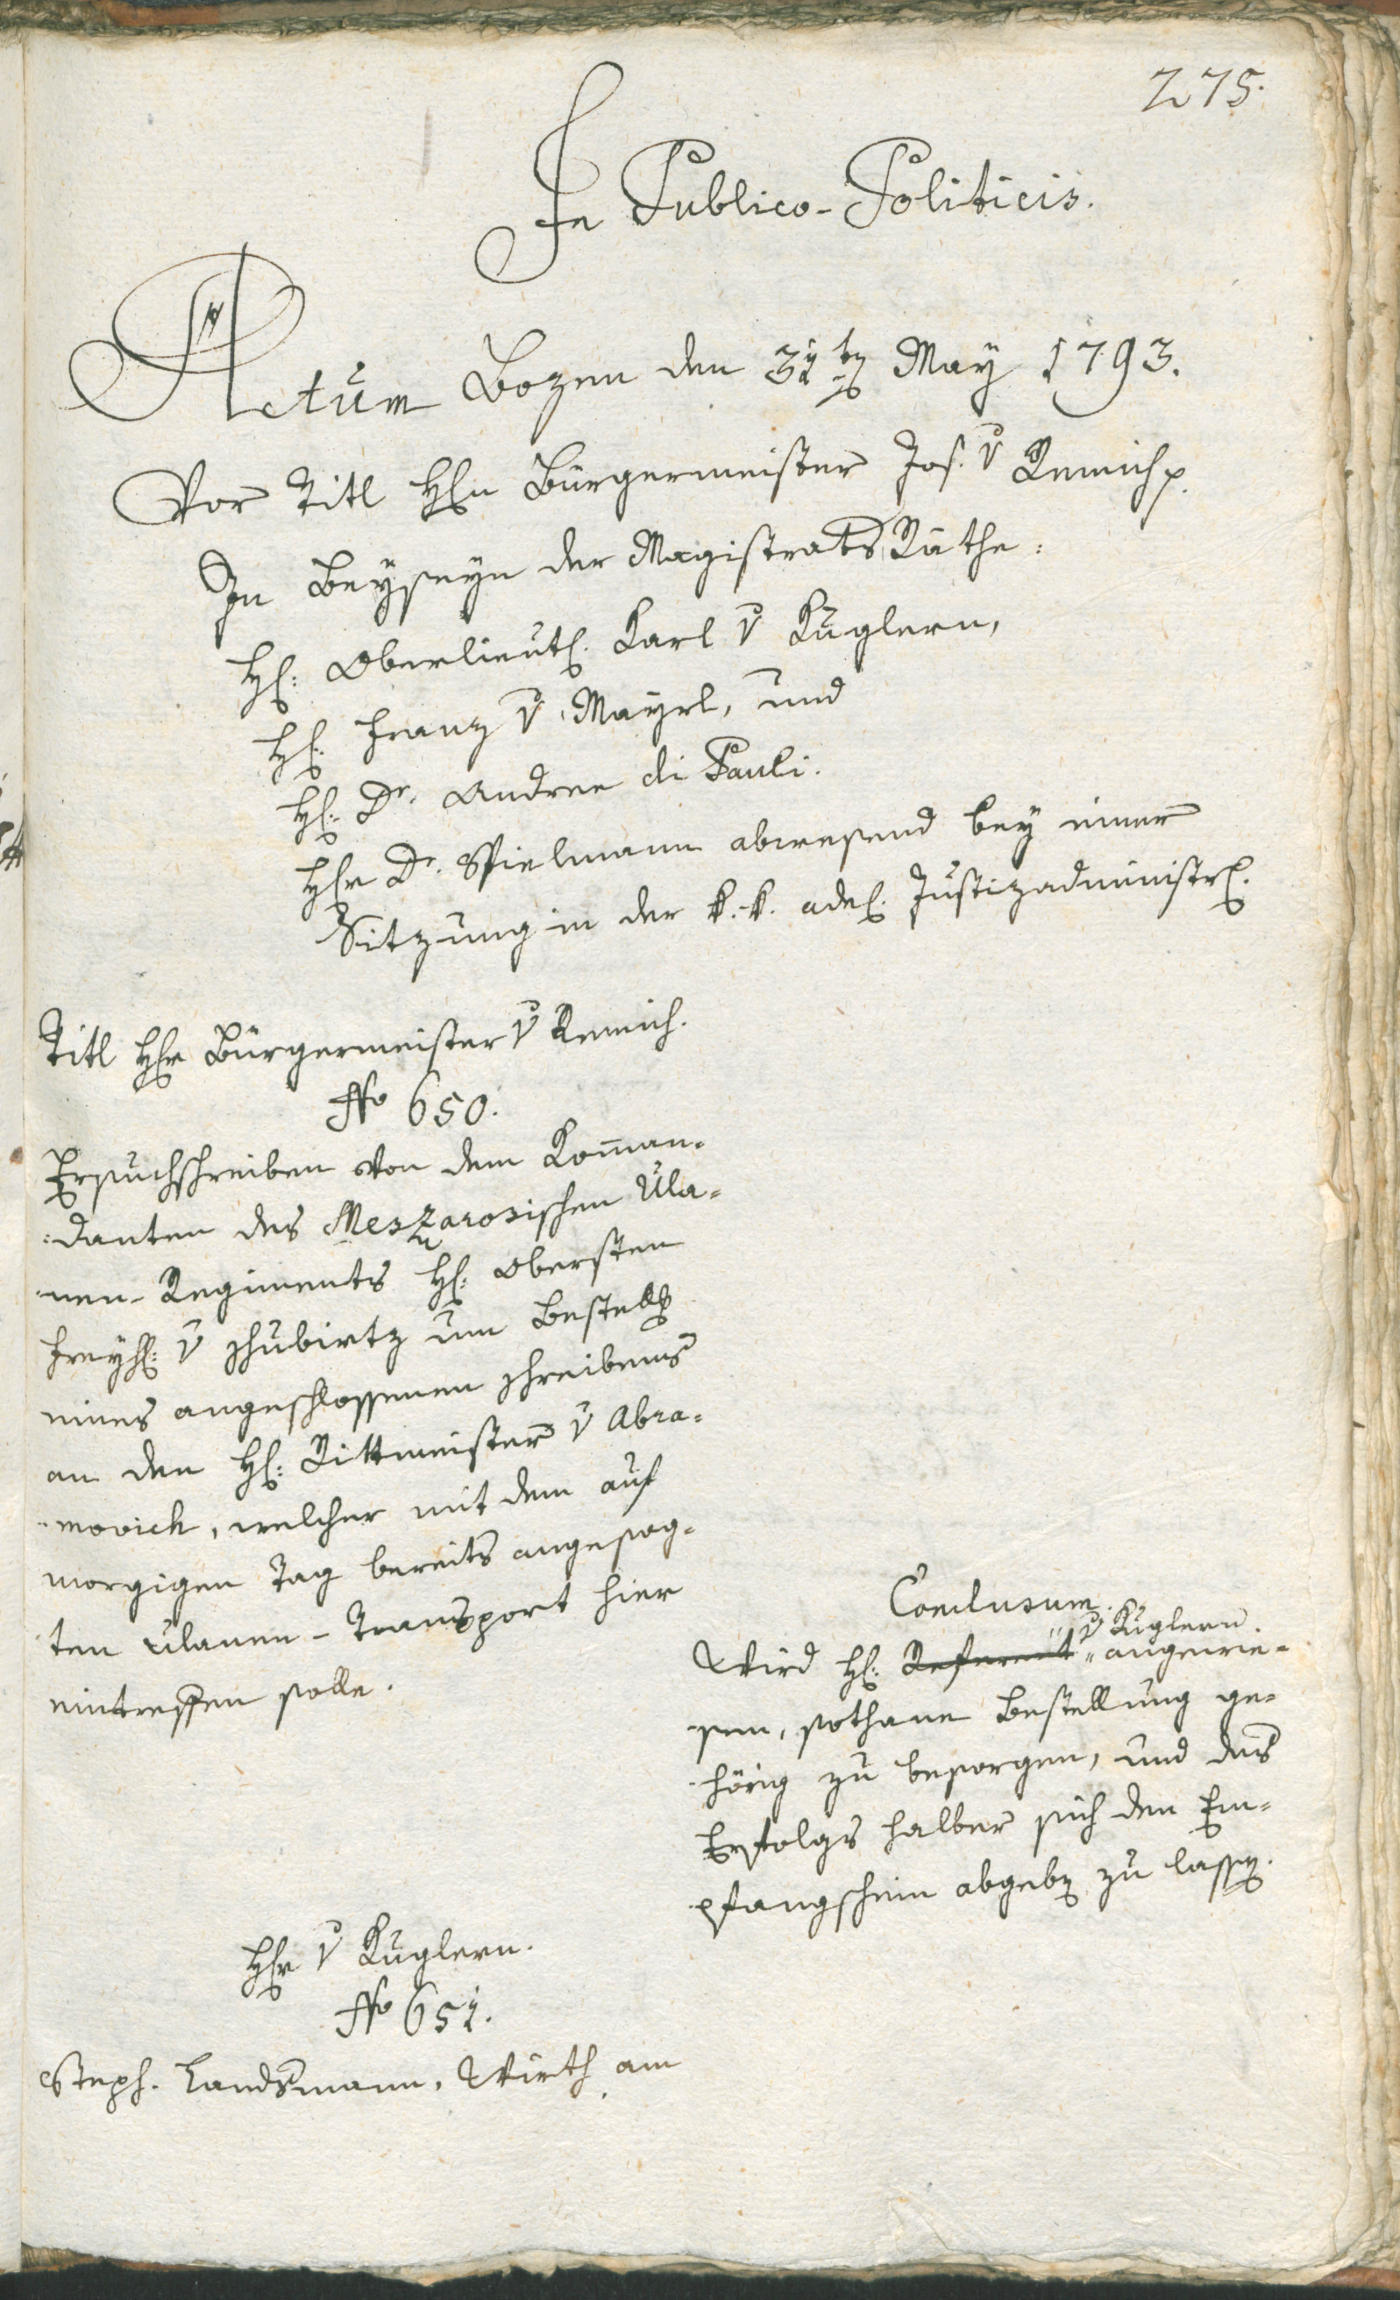 275.
In Publico-Politicis.
Actum Bozen den 31ten May 1793.
Vor Titl Hℓn Bürgermeister Jos. v Remich p.
In Beyseyn der MagistratsRäthe:
Hℓ: Oberlieutℓ. Karl v Kuglern,
Hℓ: Franz v Mayrl, und
Hℓ: Dr. Andree di Pauli.
Hℓr Dr. Spielmann abwesend bey einer
Sitzung in der k.k. adeℓ. Justizadministrℓ.
Titl Hℓr Bürgermeister v Remich.
No 650.
Ersuchschreiben von dem Kom̄an-
danten des Meszarosischen Ula-
nen-Regiments Hℓ: Obersten
Freyhℓ: v Schubirtz um Bestellg
eines angeschlossenen Schreibens
an den Hℓ: Rittmeister v Abra-
movich, welcher mit dem auf
morgigen Tag bereits angesag-
ten Ulanen-Transport hier
eintreffen solle.
Conclusum.
v Kuglern.
Wird Hℓ: Referent angewie-
sen, sothane Bestellung ge-
hörig zu besorgen, und des
Erfolgs halber sich den Em-
pfangschein abgeben zu lassen.
Hℓr v Kuglern.
No 651.
Steph. Landsmann, Wirth am